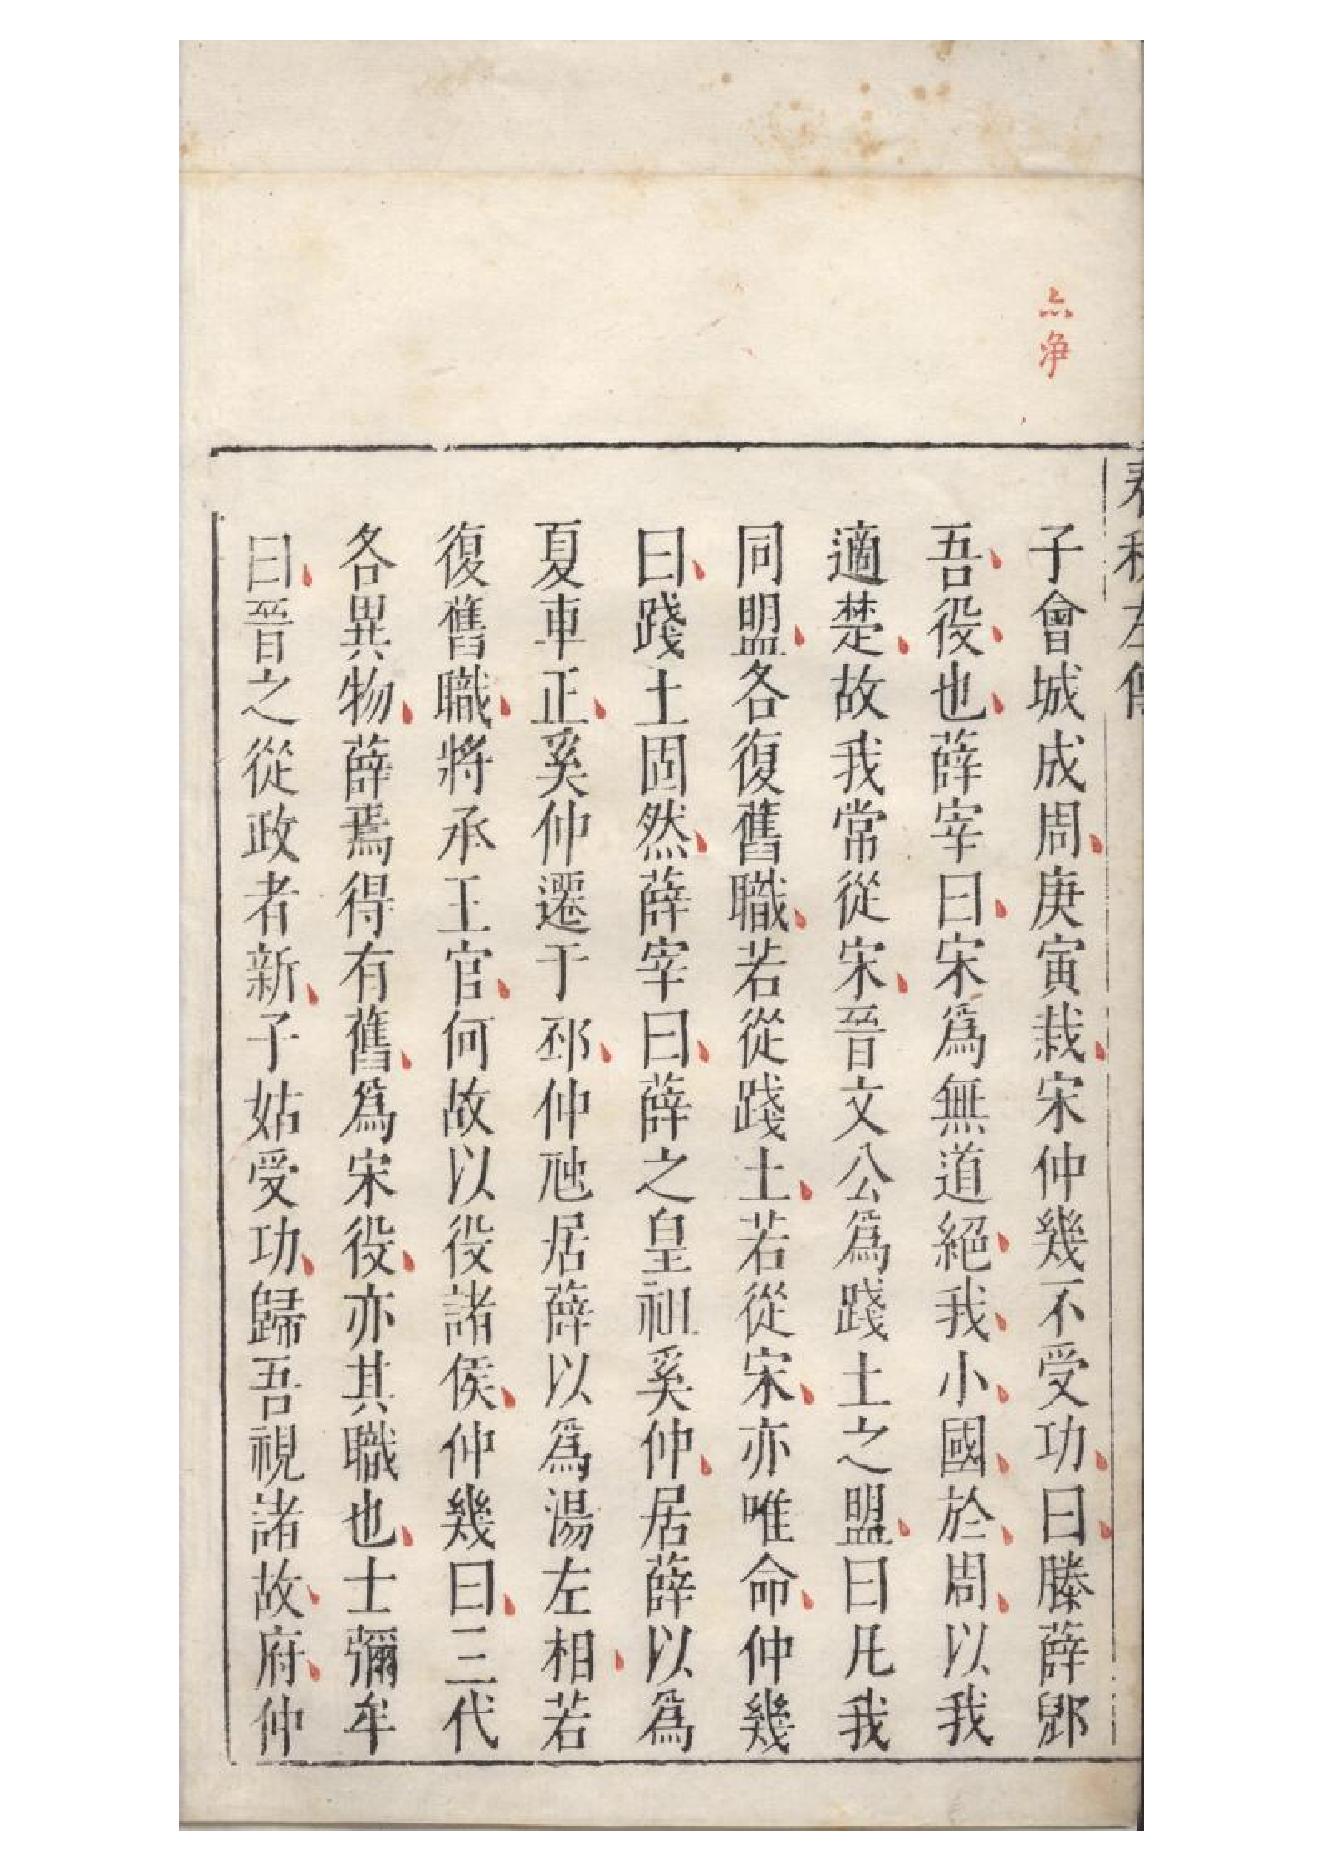 点净
春秋左傳
子會城成周庚寅栽宋仲幾不受功曰滕薛郳
吾役也薛宰曰宋爲無道絕我小國於周以我
適楚故我常從宋晉文公爲踐土之盟曰凡我
同盟各復舊職若從踐土若從宋亦唯命仲幾
曰踐土固然薛宰曰薛之皇祖奚仲居薛以爲
夏車正奚仲遷于邳仲虺居薛以爲湯左相若
復舊職將承王官何故以役諸侯仲幾曰三代
各異物薛焉得有舊爲宋役亦其職也士彌牟
曰晉之從政者新子姑受功歸吾視諸故府仲